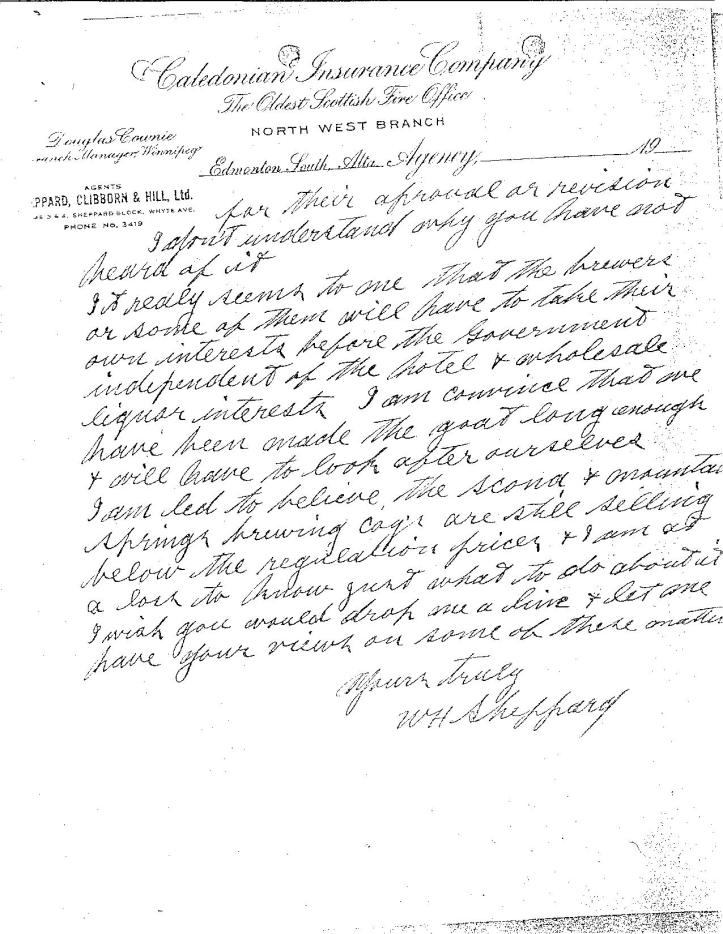 Caledonian Insurance Company
The Oldest Scottish Fire Office
NORTH WEST BRANCH
Douglas Cownie
ranch Manager, Winnipeg
Edmonton South, Alta. Agency, 19
AGENTS
PPARD, CLIBBORN & HILL, Ltd.
3 & 4, SHEPPARD BLOCK, WHYTE AVE.
PHONE No. 3419
for their aproval or revision
I don't understand why you have not
heard of it
It realy seems to me that the brewers
or some of them will have to take their
own interests before the Government
independent of the hotel & wholesale
liquor interests I am convince that we
have been made the goat long enough
& will have to look after ourselves
I am led to believe, the & mountai
springs brewing are still selling
below the regulation prices & I am at
a loss to know just what to do about it
I wish you would drop me a line & let me
have your views on some of these matter
Yours truly
WH Sheppard